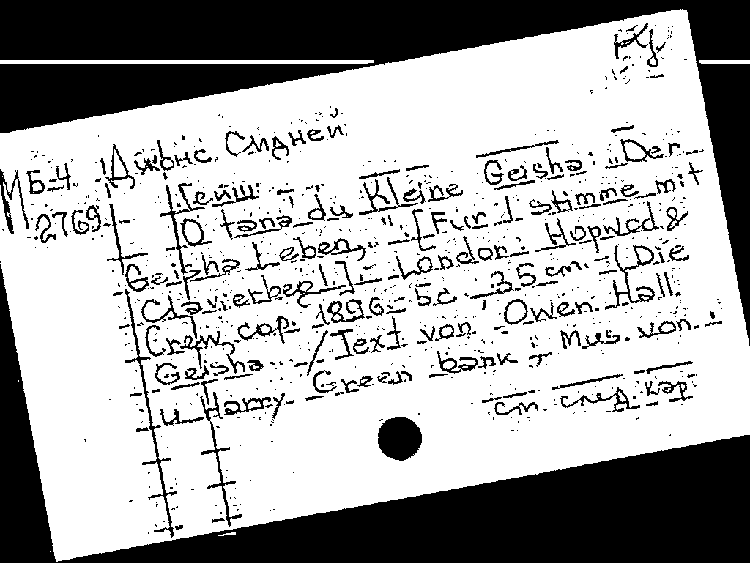 МБ-4 Джонс Сидней
2769 [Гейш.
O tana du Kleine Geisha: "Der
Geisha Leben,": [Für 1 Stimme mit
Clavierbegl.] - London: Hopwod &
Crew, cop. 1896 - 5c. 35 cm. - (Die
Geisha / Text von Owen Hall
и Harry Green bank; Mus. von.
см. след. кар